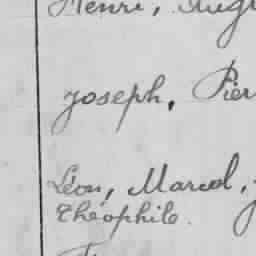 Henri, Aug
Joseph, Pier
Léon, Marcel,
Théophile.